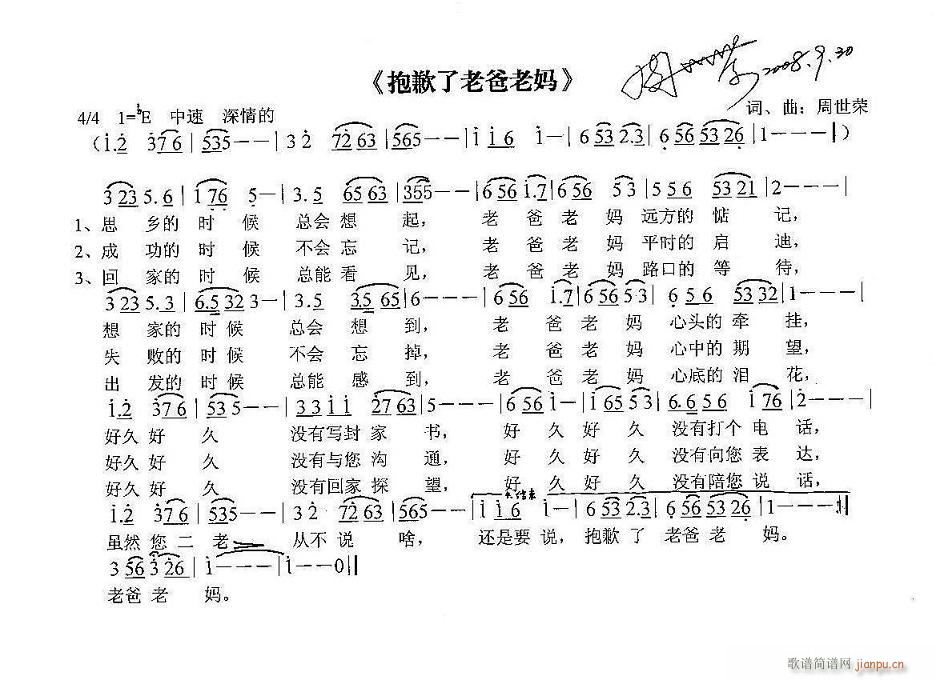 《抱歉了老爸老妈》
2008.9.20
4/4 1=♭E 中速 深情的 词、曲：周世荣
（1.2 376｜535－－｜32 7263｜565－－｜116 1－｜6 532.3｜6565326｜1－－－｜）
3235.6｜176 5－｜3.5 6563｜355－－｜656 1.7｜656 53｜556 5321｜2－－－｜
1、思 乡的 时 候 总会 想 起， 老 爸 老 妈 远方的 惦 记，
2、成 功的 时 候 不会 忘 记， 老 爸 老 妈 平时的 启 迪，
3、回 家的 时 候 总能 看 见， 老 爸 老 妈 路口的 等 待，
3235.3｜6.5323－｜3.5 3.565｜6－－－｜656 1.7｜6565.3｜656 5332｜1－－－｜
想 家的 时 候 总会 想 到， 老 爸 老 妈 心头的 牵 挂，
失 败的 时 候 不会 忘 掉， 老 爸 老 妈 心中的 期 望，
出 发的 时 候 总能 感 到， 老 爸 老 妈 心底的 泪 花，
1.2 376｜535－－｜3311 2763｜5－－－｜656 1－｜16553｜6.665 176｜2－－－｜
好久 好 久 没有写封 家 书， 好 久 好 久 没有打个 电 话，
好久 好 久 没有与您 沟 通， 好 久 好 久 没有向您 表 达，
好久 好 久 没有回家 探 望， 好 久 好 久 没有陪您 说 话，
1.2 376｜535－－｜32 7263｜565－－｜116 1－｜6 532.3｜656 5326｜1－－－:‖
虽然 您 二 老 从不 说 啥， 还是要 说， 抱歉 了 老爸 老 妈。
3 563 26｜1－－－｜1－－0‖
老爸 老 妈。
歌谱简谱网 jianpu.cn